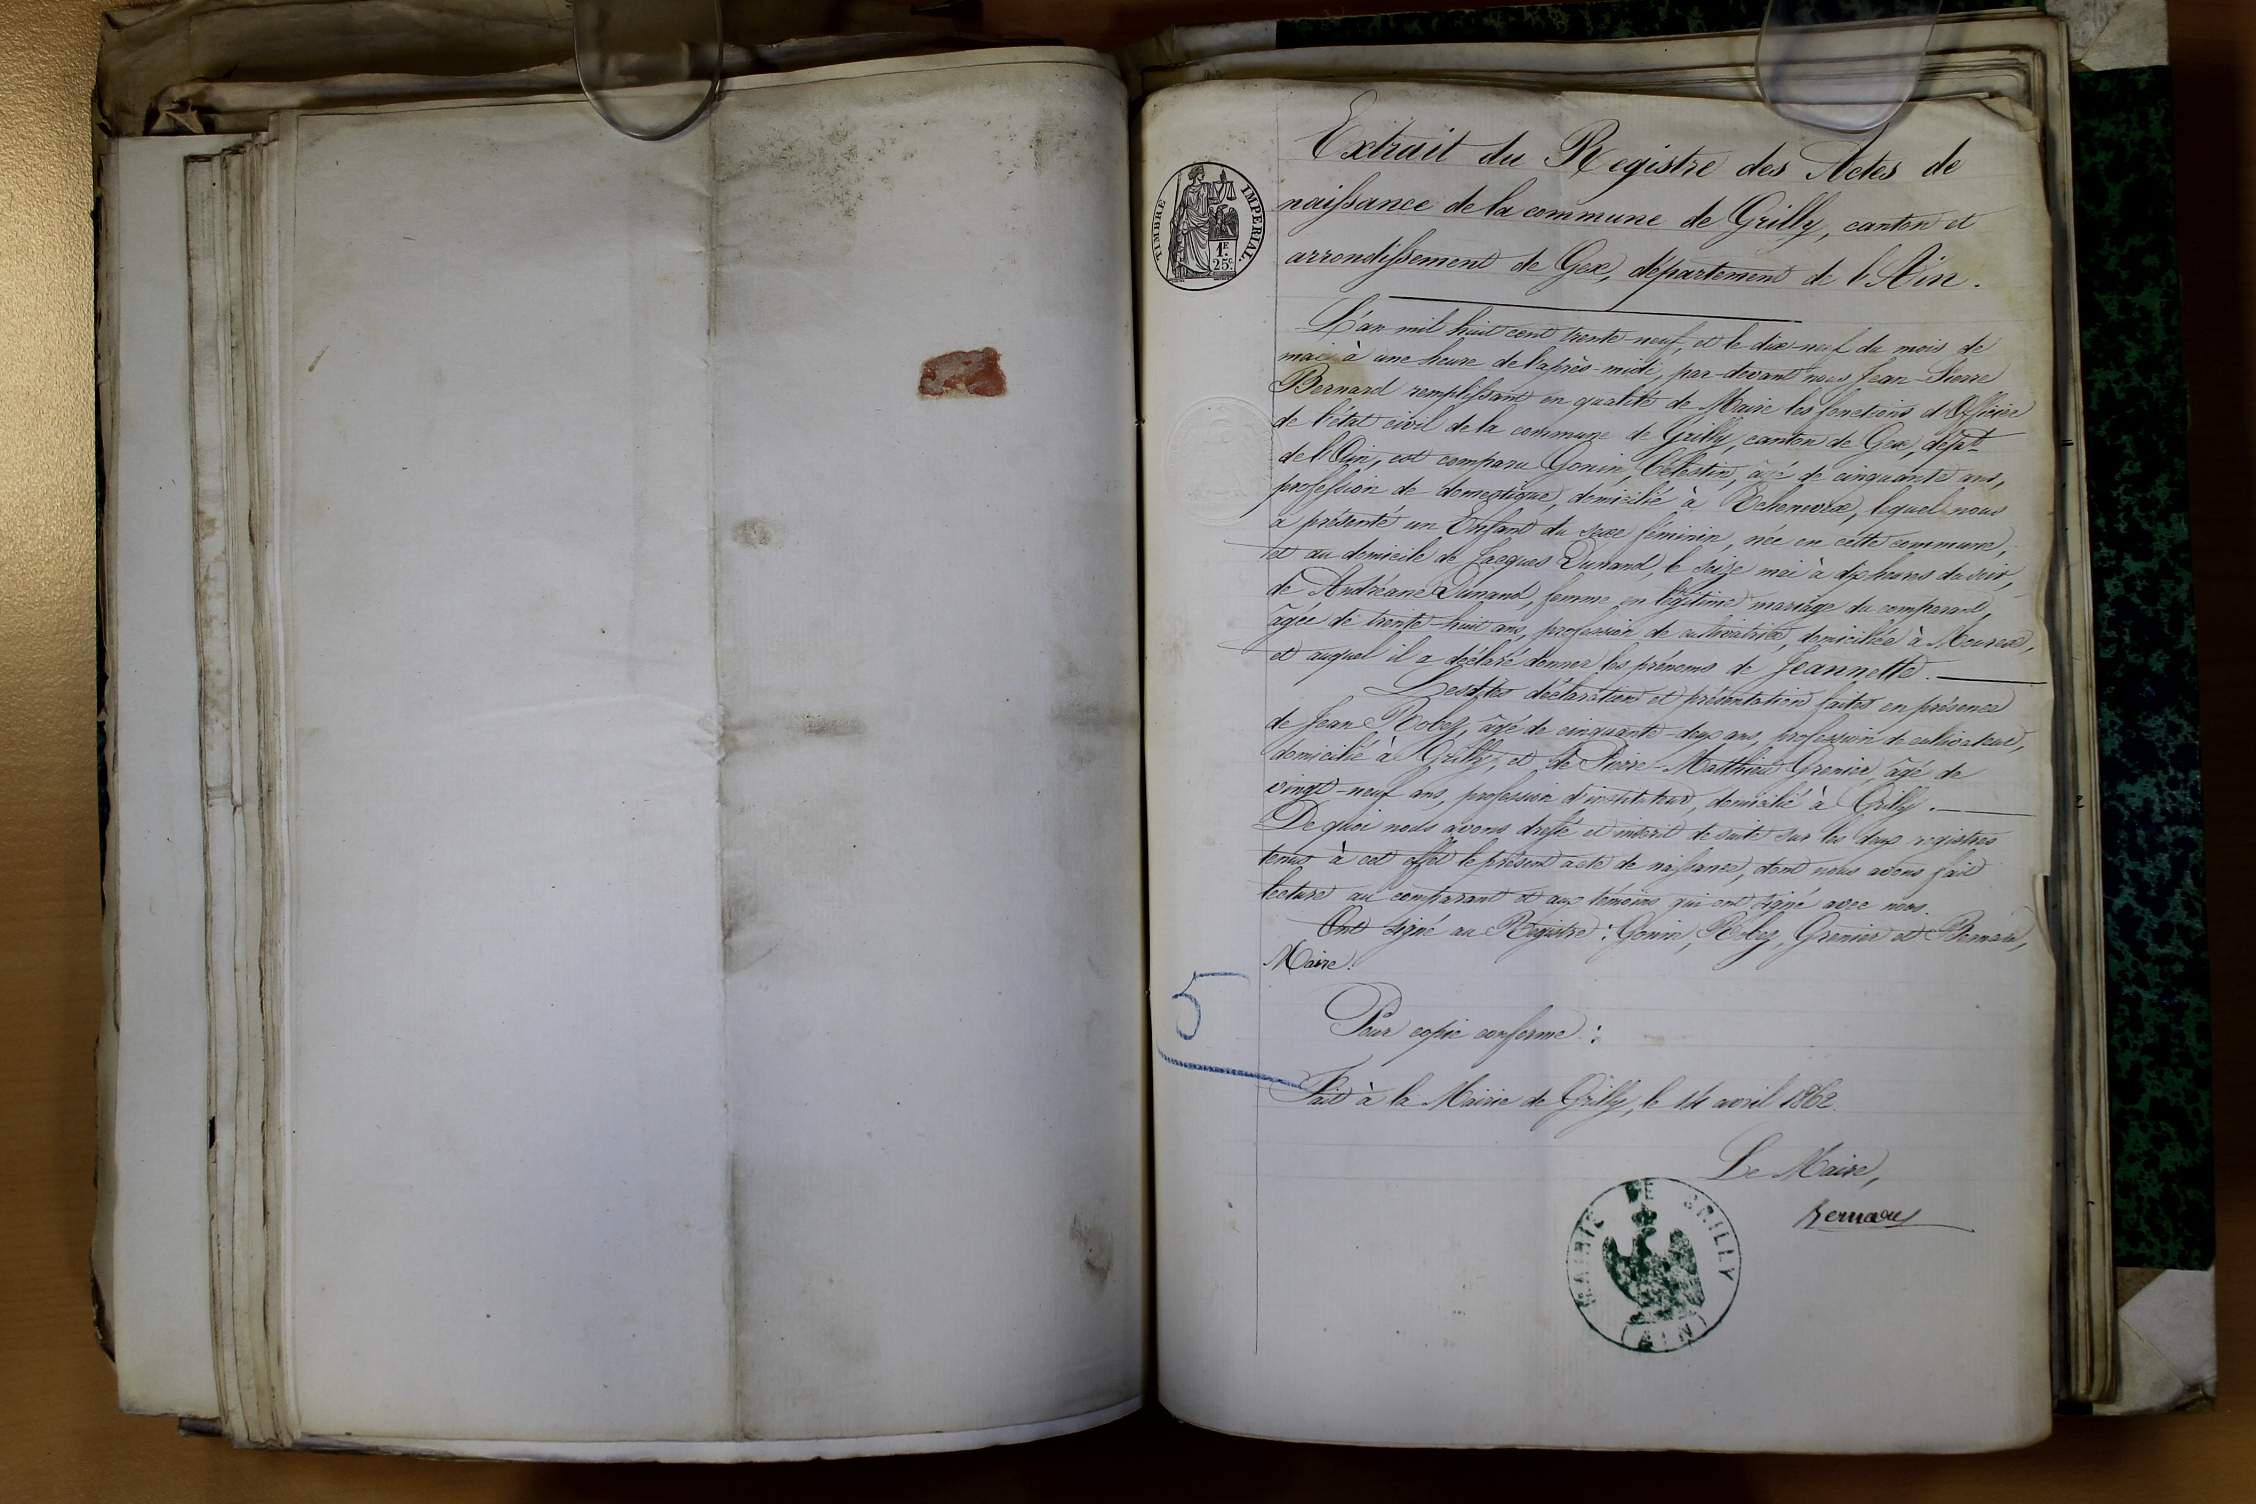 Extrait du Registre des Actes de
naissance de la commune de Grilly, canton et
arrondissement de Gex, département de l'Ain.
TIMBRE IMPERIAL.
1F.
25c.
L'an mil huit cent trente-neuf, et le dix-neuf du mois de
mai à une heure de l'après-midi, par-devant nous Jean-Pierre
Bernard remplissant en qualité de Maire les fonctions d'Officier
de l'état civil de la commune de Grilly, canton de Gex, dépt
de l'Ain, est comparu Gonin, Célestin, âgé de cinquante ans,
profession de domestique, domicilié à Echenevex, lequel nous
a présenté un Enfant du sexe féminin, née en cette commune,
et au domicile de Jacques Dunand, le seize mai à dix heures du soir,
de Andréane Dunand, femme en légitime mariage du comparant,
âgée de trente-huit ans, profession de cultivatrice, domiciliée à Mourex,
et auquel il a déclaré donner les prénoms de Jeannette.
Lesdites déclaration et présentation faites en présence
de Jean Robez, âgé de cinquante-deux ans, profession de cultivateur,
domicilié à Grilly, et de Pierre-Matthieu Grenier, âgé de
vingt-neuf ans, profession d'instituteur, domicilié à Grilly.
De quoi nous avons dressé et inscrit de suite sur les deux registres
tenus à cet effet le présent acte de naissance, dont nous avons fait
lecture au comparant et aux témoins qui ont signé avec nous.
Ont signé au Registre: Gonin, Robez, Grenier et Bernard,
Maire.
5
Pour copie conforme:
Fait à la Mairie de Grilly, le 14 avril 1862.
Le Maire,
Bernard
MAIRIE DE GRILLY
(AIN)